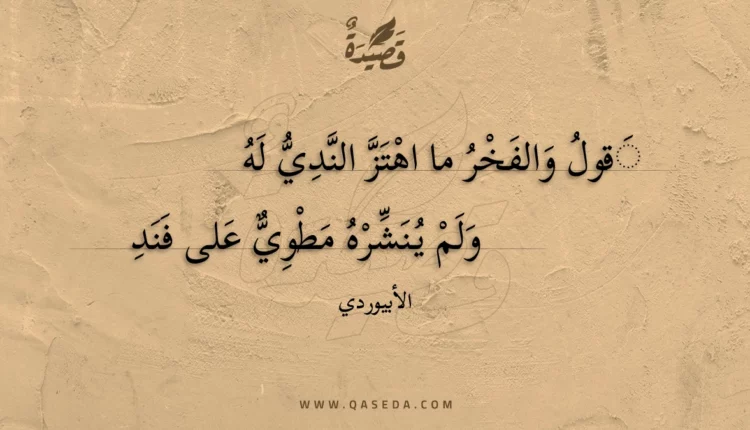 قَصِيدَةٌ
َقولُ وَالفَخْرُ ما اهْتَزَّ النَّدِيُّ لَهُ
وَلَمْ يُنَشِّرْهُ مَطْوِيٌّ عَلى فَنَدِ
الأبيوردي
WWW.QASEDA.COM